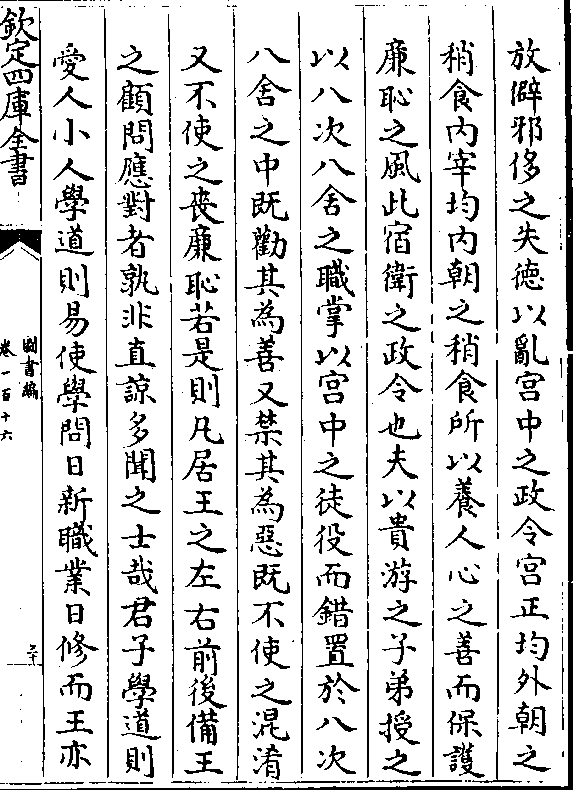 放僻邪侈之失徳以亂宫中之政令宫正均外朝之
稍食内宰均内朝之稍食所以養人心之善而保護
廉恥之風此宿衛之政令也夫以貴游之子弟授之
以八次八舍之職掌以宫中之徒役而錯置於八次
八舍之中既勸其為善又禁其為惡既不使之混淆
又不使之喪廉恥若是則凡居王之左右前後備王
之顧問應對者孰非直諒多聞之士哉君子學道則
愛人小人學道則易使學問日新職業日修而王亦
欽定四庫全書
圖書編
卷一百十六
二十